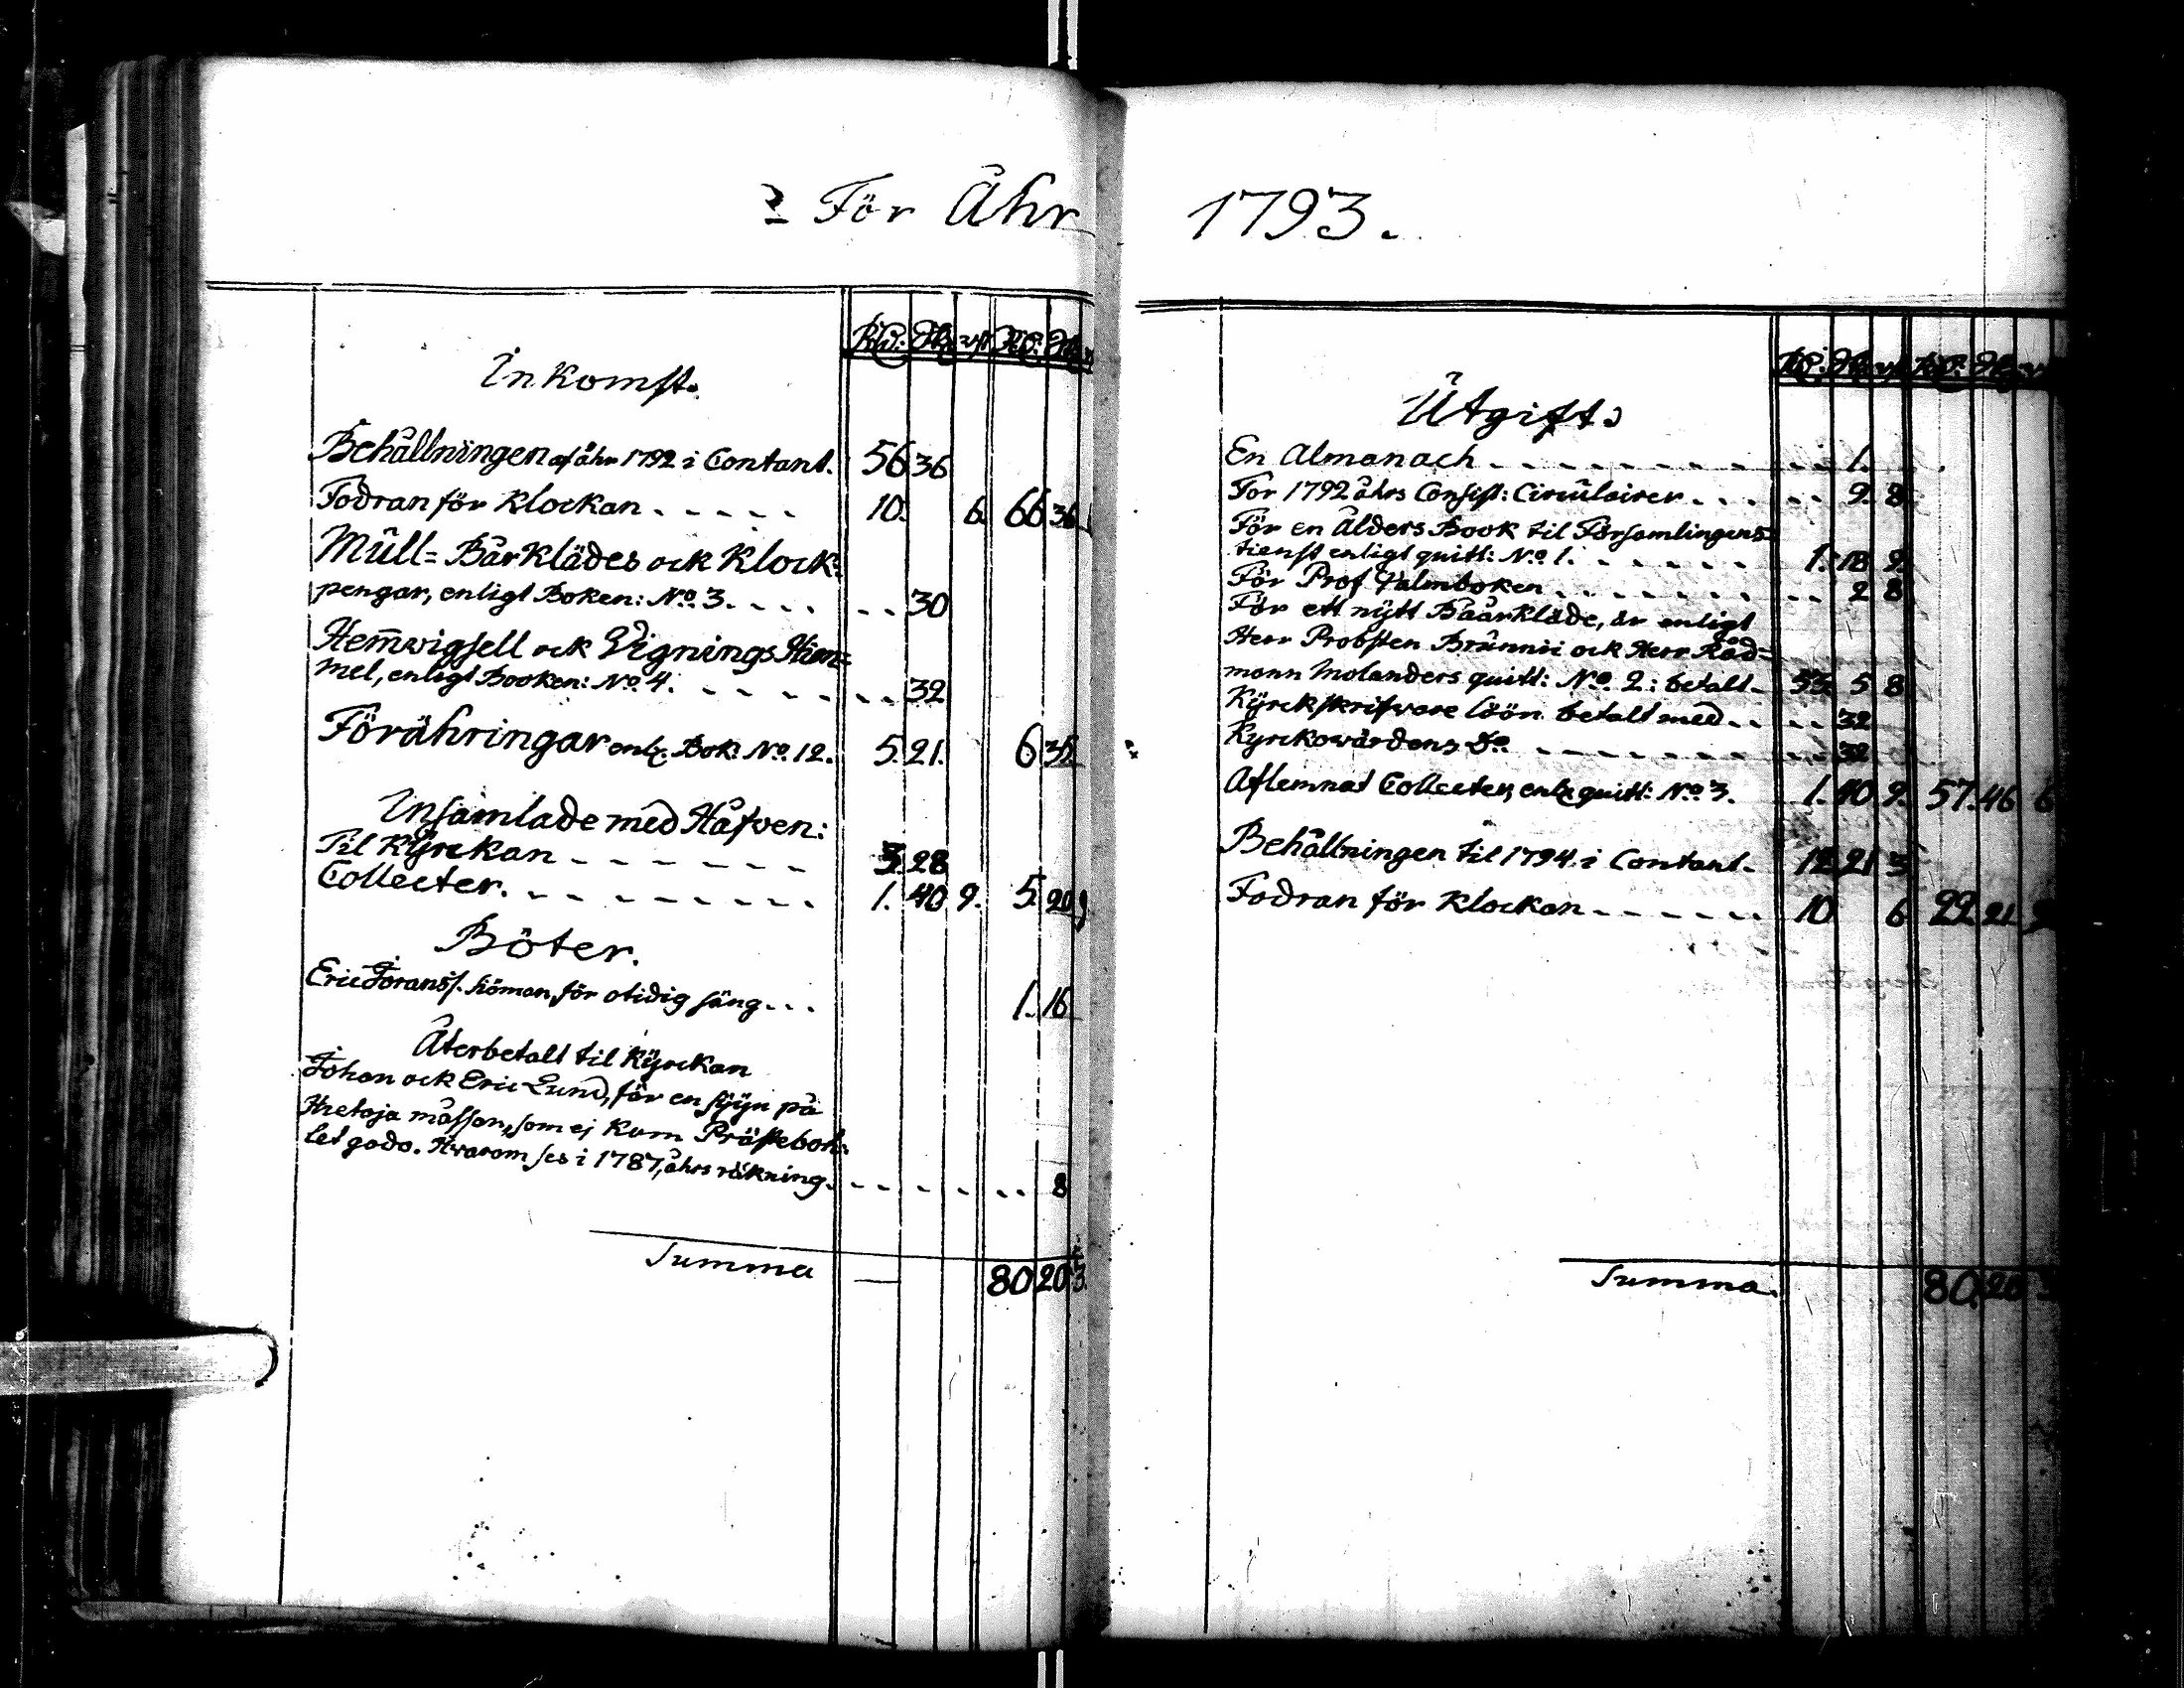 För Åhr 1793.
Rd. sk. rst. Rd. sk.
Inkomst.
Behållningen af åhr 1792 i Contant. 56 36
Fodran för Klockan - - - - - 10. 6. 66 36
Mull= Bårklädes ock Klock=
pengar, enligt Boken: No. 3. - - - - - 30
Hemwigsell ock Vignings Him=
mel, enligt Booken: No. 4. - - - - - - - 32
Förähringar enl. Bok: No. 12. 5. 21. 6 35
Insamlade med Håfven:
Til Kyrckan - - - - - - 3. 28
Collecter. - - - - - - - - 1. 40 9. 5. 20 9
Böter.
Eric Joranss. för otidig säng - - - 1. 16
Återbetalt til Kyrckan
Johan ock Eric Lund, för en syyn på
måssan, som ej kom Prästeboh=
let godo. Hvarom ses i 1787, åhrs räkning. - - - - - - - 8
Summa — 80 20 3
Utgift.
En Almanach - - - - - - - - - - - 1.
For 1792 åhrs Consist: Circulairer - - - - - 9. 8
För en Ålders Book til Församlingens
tienst enligt quitt: No. 1. - - - - - - 1. 18 9.
För Prof Psalmboken - - - - - - - - 2 8
För ett nytt Båårkläde, är enligt
Herr Probsten Brunnii ock Herr Råd=
mann Molanders quitt: No. 2: betalt - 53. 5 8
Kyrckskrifvare löön betalt med - - - - 32
Kyrckowärdens Do - - - - - - - - - - 32
Aflemnat Collecter, enl. quitt: No. 3. 1. 40 9. 57. 46 6
Behållningen til 1794 i Contant - 12 21 3
Fodran för Klockan - - - - - - 10 6 22 21 9
Summa. 80. 20 3